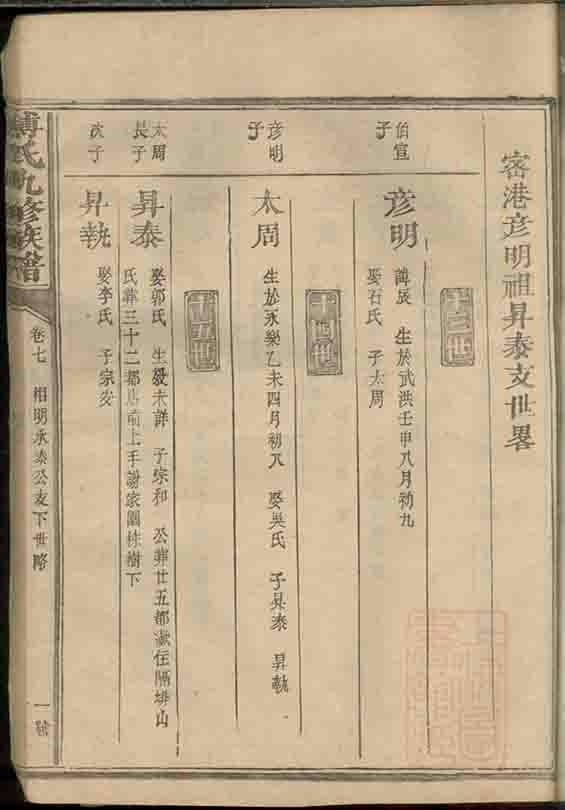 密港彦明祖昇泰支世畧
十三世
伯宣
子
彦明
諱辰 生於武洪壬申八月初九
娶石氏 子太周
十四世
彦明
子
太周
生於永樂乙未四月初八 娶吳氏 子昇泰 昇執
十五世
太周
長子
昇泰
娶郭氏 生歿未詳 子宗和 公葬廿五都 山
氏葬三十二都 前上手謝家園 樹下
次子
昇執
娶李氏 子宗安
傅氏九修族譜
卷七 相明永泰公支下世略 一號